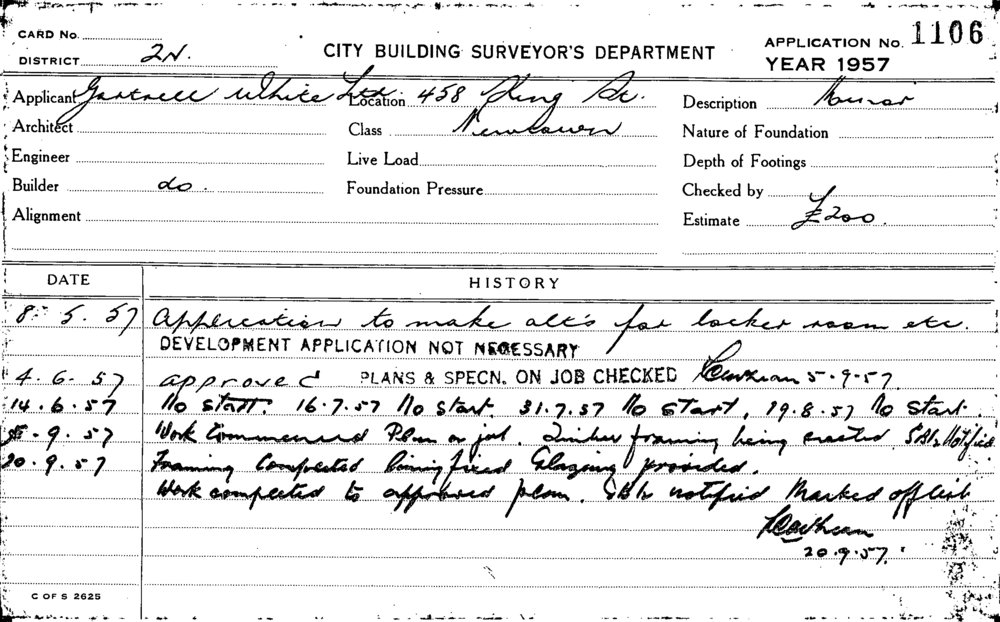 CARD No.
APPLICATION No. 1106
DISTRICT 2N.
CITY BUILDING SURVEYOR'S DEPARTMENT
YEAR 1957
Applicant Gartrell White Ltd. Location 458 King St. Description Minor
Architect Class Newtown Nature of Foundation
Engineer Live Load Depth of Footings
Builder do. Foundation Pressure Checked by
Alignment Estimate £200.
DATE HISTORY
8. 5. 57 Application to make alt's for locker room etc.
DEVELOPMENT APPLICATION NOT NECESSARY
4. 6. 57 approved PLANS & SPECN. ON JOB CHECKED 5-9-57.
14. 6. 57 No start. 16.7.57 No start. 31.7.57 No start. 19.8.57 No start.
5. 9. 57 Work Commenced Plan on job. Timber framing being erected notified
20. 9. 57 Framing Completed lining fixed Glazing provided.
Work completed to approved plan. notified Marked off list
20.9.57.
C OF S 2625